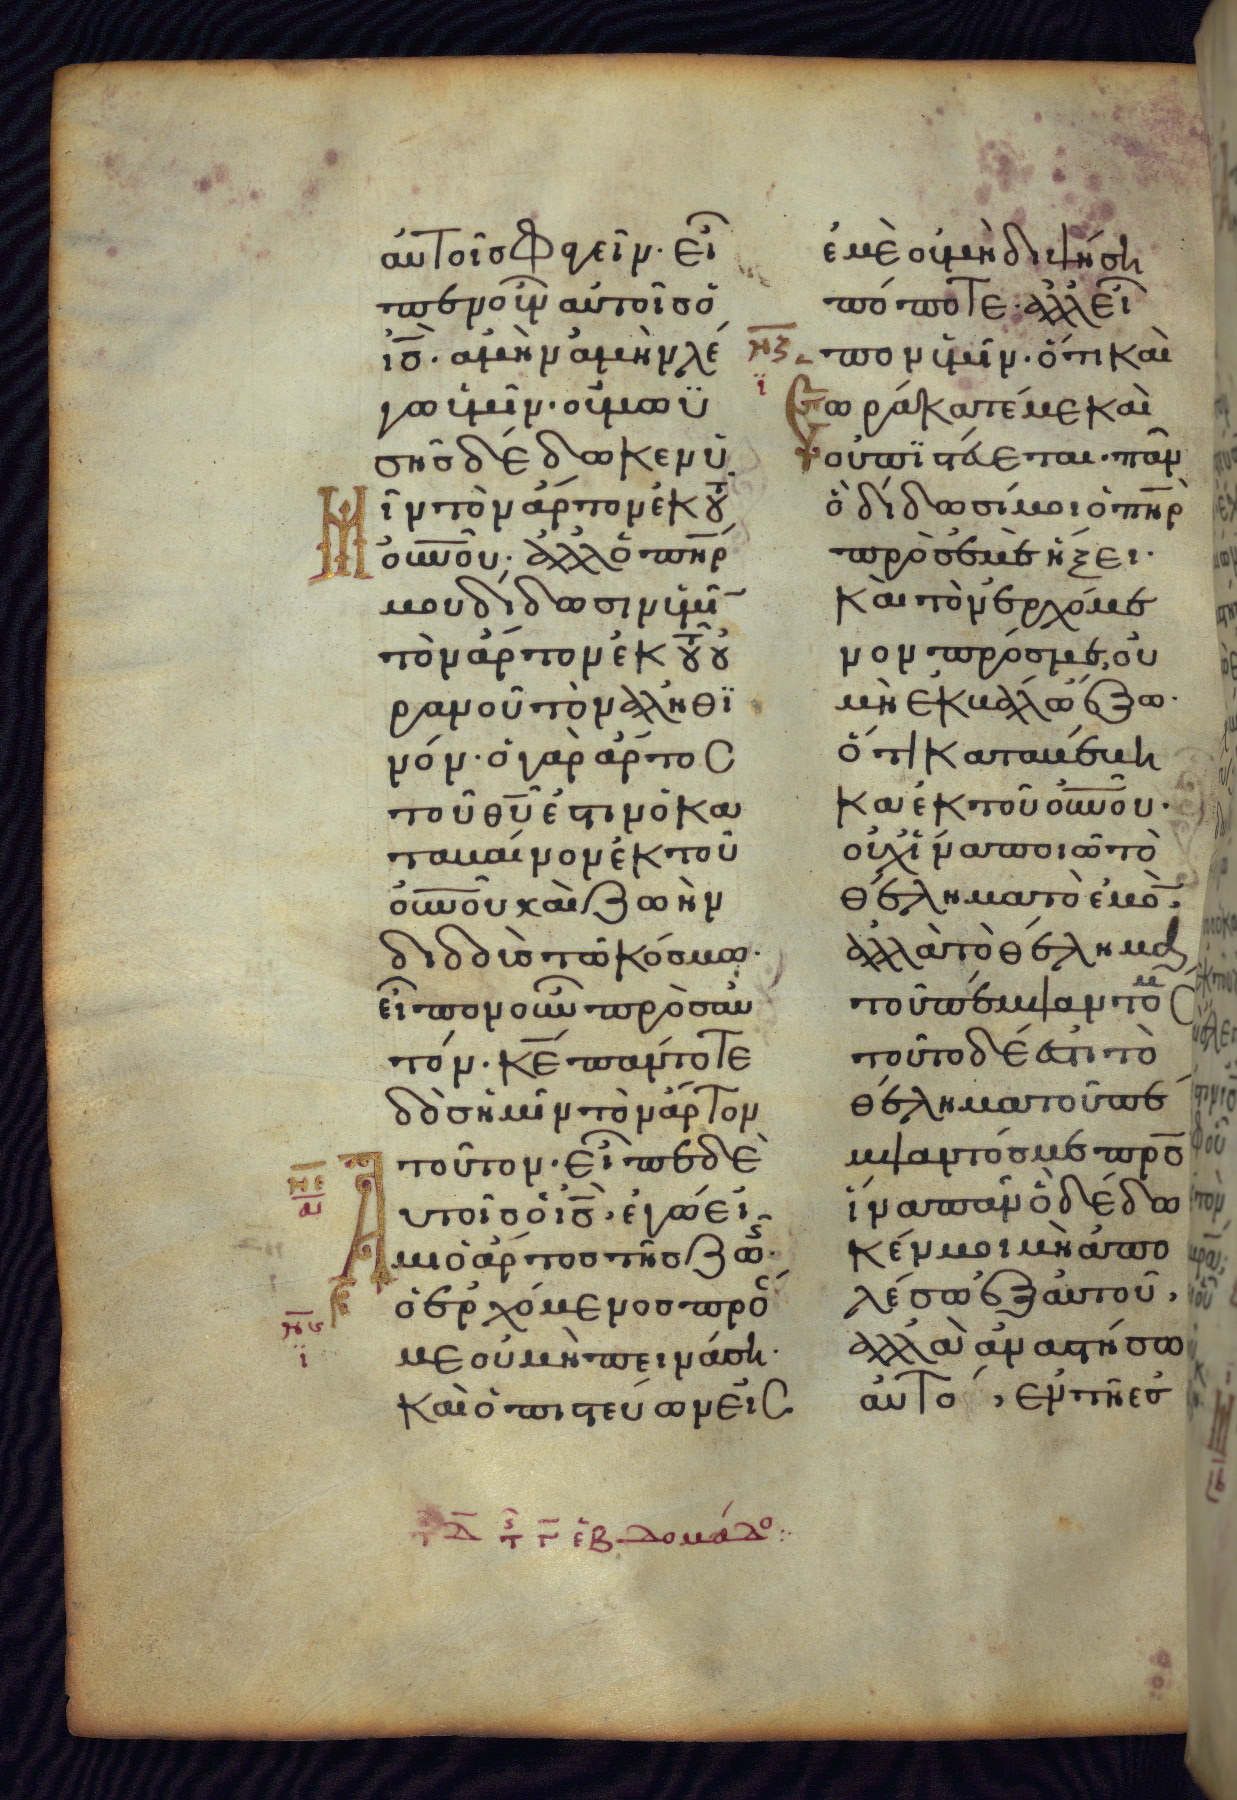 αὐτοῖς φαγεῖν· εἶ
πεν οὖν αὐτοῖς ὁ
ι̅ς̅· ἀμὴν ἀμὴν λέ
γω ὑμῖν· οὐ μωϋ
σῆς δέδωκεν ὑ
μῖν τὸν ἄρτον ἐκ τοῦ
ο̅υ̅ν̅ο̅υ̅· ἀλλ ὁ π̅η̅ρ̅
μου δίδωσιν ὑμῖ
τὸν ἄρτον ἐκ τοῦ οὐ
ρανοῦ τὸν ἀληθϊ
νόν· ὁ γὰρ ἄρτος
τοῦ θ̅υ̅ ἐστιν ὁ κα
ταβαίνον ἐκ τοῦ
ο̅υ̅ν̅ο̅υ̅ καὶ ζωὴν
διδοὺς τῶ κόσμω·
εἶπον οὖν πρὸς αὐ
τόν· κ̅ε̅ πάντοτε
δὸς ἡμῖν τὸν ἄρτον
τοῦτον· εἶπεν δὲ
ν̅ε̅
α
αυτοῖς ὁ ι̅ς̅· ἐγώ εἰ
μι ὁ ἄρτος τῆς ζωῆς·
ὁ ἐρχόμενος πρός
ν̅ς̅
ϊ
με οὐ μὴ πεινάση·
καὶ ὁ πιστεύων εἰς
ἐμὲ οὐ μὴ διψήση
πώποτε· ἀλλ εἶ
ν̅ζ̅
πον ὑμῖν· ὅτι καὶ
ϊ
ἑωράκατέ με καὶ
οὐ πϊστεύεται· πᾶν
ὃ δίδωσί μοι ὁ π̅η̅ρ̅
πρὸς ἐμὲ ἥξει·
καὶ τὸν ἐρχόμε
νον πρός με, οὐ
μὴ ἐκβάλω ἔξω·
ὅτι καταβέβη
κα ἐκ τοῦ ο̅υ̅ν̅ο̅υ̅·
οὐχ ἵνα ποιῶ τὸ
θέλημα τὸ ἐμὸ·
ἀλλὰ τὸ θέλημα
τοῦ πέμψαντός με
τοῦτο δέ ἐστι τὸ
θέλημα τοῦ πέ
μψαντός με π̅ρ̅ς̅
ἵνα πᾶν ὃ δέδω
κέν μοι μὴ ἀπο
λέσω ἐξ αὐτοῦ,
ἀλλὰ ἀναστήσω
αὐτό, ἐν τῆ ἐσ
τ δ̅ τῆς γ̅ ἑβδομάδο